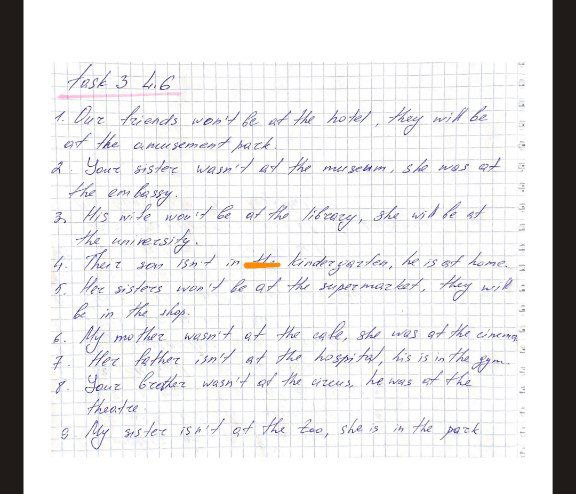 Task 3 4.6
1. Our friends won't be at the hotel, they will be
at the amusement park.
2. Your sister wasn't at the museum, she was at
the embassy.
3. His wife won't be at the library, she will be at
the university.
4. Their son isn't in the kindergarten, he is at home.
5. Her sisters won't be at the supermarket, they will
be in the shop.
6. My mother wasn't at the cafe, she was at the cinema
7. Her father isn't at the hospital, his is in the gym.
8. Your brother wasn't at the circus, he was at the
theatre.
9 My sister isn't at the zoo, she is in the park